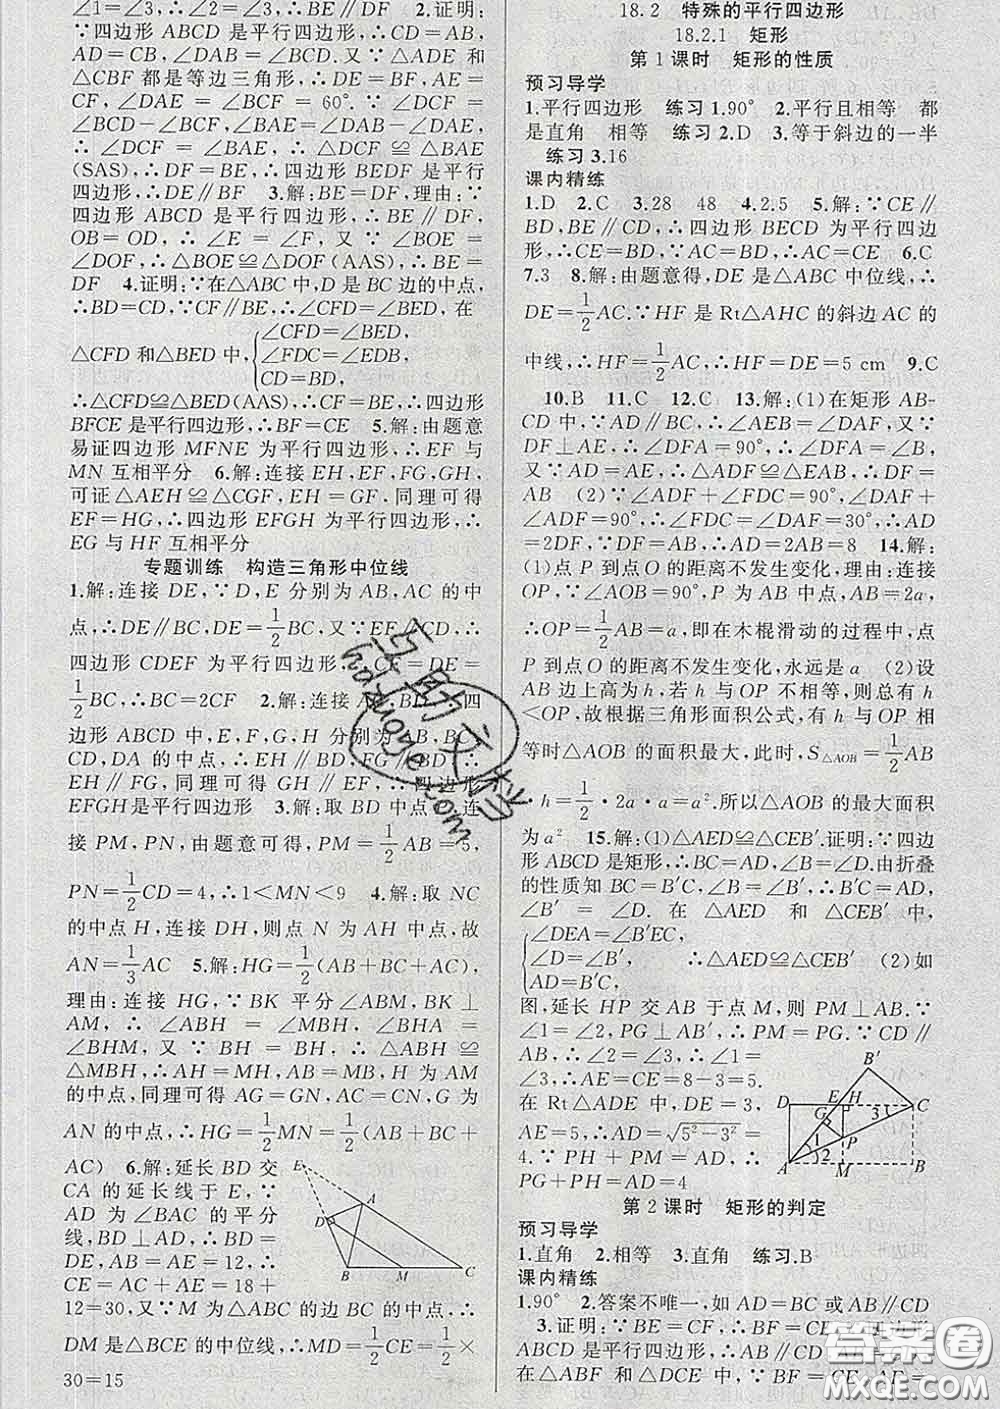 ∠1＝∠3，∴BE∥DF　2.证明：∵
四边形 ABCD 是平行四边形，∴CD＝AB，
AD＝CB，∠DAB＝∠BCD，又∵△ADE 和
△CBF 都是等边三角形，∴DE＝BF，AE＝
CF，∠DAE ＝ ∠BCF ＝ 60°. ∵∠DCF ＝
∠BCD－∠BCF，∠BAE＝∠DAB－∠DAE，
∴ ∠DCF ＝ ∠BAE，∴ △DCF ≌ △BAE
(SAS)，∴DF＝BE，∴四边形 BEDF 是平行
四边形，∴DE∥BF　3.解：BE＝DF，理由：∵
四边形 ABCD 是平行四边形，∴BE∥DF，
OB＝OD，∴∠E＝∠F，又∵∠BOE＝
∠DOF，∴△BOE≌△DOF(AAS)，∴BE＝
DF　4.证明：∵在△ABC 中，D 是 BC 边的中点，
∴BD＝CD，∵CF∥BE，∴∠CFD＝∠BED，在
△CFD 和△BED 中，{∠CFD＝∠BED，
∠FDC＝∠EDB，
CD＝BD，
∴△CFD≌△BED(AAS)，∴CF＝BE，∴四边形
BFCE 是平行四边形，∴BF＝CE　5.解：由题意
易证四边形 MFNE 为平行四边形，∴EF 与
MN 互相平分　6.解：连接 EH，EF，FG，GH，
可证△AEH≌△CGF，EH＝GF. 同理可得
EF＝HG，∴四边形 EFGH 为平行四边形，∴
EG 与 HF 互相平分
专题训练　构造三角形中位线
1.解：连接 DE，∵D，E 分别为 AB，AC 的中
点，∴DE∥BC，DE＝1/2BC，又∵EF∥CD，∴
四边形 CDEF 为平行四边形，∴CF＝DE＝
1/2BC，∴BC＝2CF　2.解：连接 BD，∵四
边形 ABCD 中，E，F，G，H 分别为 AB，BC，
CD，DA 的中点，∴EH∥BD，FG∥BD，∴
EH∥FG，同理可得 GH∥EF，∴四边形
EFGH是平行四边形　3.解：取 BD 中点P，连
接 PM，PN，由题意可得，PM＝1/2AB＝5，
PN＝1/2CD＝4，∴1＜MN＜9　4.解：取 NC
的中点 H，连接 DH，则点 N 为 AH 中点，故
AN＝1/3AC　5.解：HG＝1/2(AB＋BC＋AC)，
理由：连接 HG，∵BK 平分∠ABM，BK⊥
AM，∴ ∠ABH ＝ ∠MBH，∠BHA＝
∠BHM，又 ∵ BH＝BH，∴ △ABH ≌
△MBH，∴AH＝MH，AB＝BM，H 为 AM
的中点，同理可得 AG＝GN，AC＝CN，G 为
AN 的中点，∴HG＝1/2MN＝1/2(AB＋BC＋
AC)　6.解：延长 BD 交
CA 的延长线于 E，∵
AD 为∠BAC 的平分
线，BD⊥AD，∴BD＝
DE，AB＝AE＝12，∴
CE＝AC＋AE＝18＋
12＝30，又∵M 为△ABC 的边 BC 的中点，∴
DM 是△BCE 的中位线，∴MD＝1/2CE＝1/2×
30＝15
E
A
D
B
M
C
18.2　特殊的平行四边形
18.2.1　矩形
第 1 课时　矩形的性质
预习导学
1.平行四边形　练习1.90°　2.平行且相等　都
是直角　相等　练习2.D　3.等于斜边的一半
练习3.16
课内精练
1.D　2.C　3.28　48　4.2.5　5.解：∵CE∥
BD，BE∥CD，∴四边形 BECD 为平行四边
形，∴CE＝BD，∵AC＝BD，∴AC＝CE　6.C
7.3　8.解：由题意得，DE 是△ABC 中位线，∴
DE＝1/2AC.∵HF 是 Rt△AHC 的斜边 AC 的
中线，∴HF＝1/2AC，∴HF＝DE＝5 cm　9.C
10.B　11.C　12.C　13.解：(1)在矩形 AB-
CD 中，∵AD∥BC，∴∠AEB＝∠DAF，又∵
DF⊥AE，∴∠DFA＝90°，∴∠DFA＝∠B，
又∵AD＝AE，∴△ADF≌△EAB，∴DF＝
AB　(2)∵∠ADF＋∠FDC＝90°，∠DAF＋
∠ADF＝90°，∴∠FDC＝∠DAF＝30°，∴AD
＝2DF，∵DF＝AB，∴AD＝2AB＝8　14.解：
(1)点 P 到点 O 的距离不发生变化，理由：连接
OP，∵∠AOB＝90°，P 为 AB 中点，AB＝2a，
∴OP＝1/2AB＝a，即在木棍滑动的过程中，点
P 到点 O 的距离不发生变化，永远是 a　(2)设
AB 边上高为 h，若 h 与 OP 不相等，则总有 h
＜OP，故根据三角形面积公式，有 h 与 OP 相
等时△AOB 的面积最大，此时，S△AOB＝1/2AB
·h＝1/2·2a·a＝a².所以△AOB 的最大面积
为 a²　15.解：(1)△AED≌△CEB′.证明：∵四边
形 ABCD 是矩形，∴BC＝AD，∠B＝∠D.由折叠
的性质知 BC＝B′C，∠B＝∠B′，∴B′C＝AD，
∠B′ ＝ ∠D. 在 △AED 和 △CEB′ 中，
{∠DEA＝∠B′EC，
∠D＝∠B′，　∴△AED≌△CEB′　(2)如
AD＝B′C，
图，延长 HP 交 AB 于点 M，则 PM⊥AB. ∵
∠1＝∠2，PG⊥AB′，∴PM＝PG.∵CD∥
AB，∴∠2＝∠3，∴∠1＝
∠3，∴AE＝CE＝8－3＝5.
在 Rt△ADE 中，DE＝3，
AE＝5，∴AD＝√5²－3²＝
4.∵PH＋PM＝AD，∴
PG＋PH＝AD＝4
B′
D
E
H
C
G
3
1
2
P
A
M
B
第 2 课时　矩形的判定
预习导学
1.直角　2.相等　3.直角　练习.B
课内精练
1.90°　2.答案不唯一，如 AD＝BC 或AB∥CD
3.证明：∵BE＝CF，∴BF＝CE
ABCD 是平行四边形，∴AB＝DC
在△ABF 和△DCE 中，∵AB＝
互助文档
huzuoye.com
答案圈
MXQE.COM